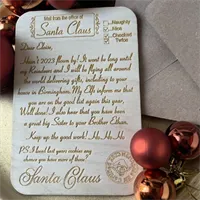 Mail from the office of
Santa Claus
Naughty
Nice
Checked
Twice
Dear Elsie,
Hasn't 2023 flown by! It wont be long until
my Reindeers and I will be flying all around
the world delivering gifts, including to your
home in Birmingham. My Elfs inform me that
you are on the good list again this year,
Well done! I also hear that you have been
a great big Sister to your Brother Ethan.
Keep up the good work! Ho, Ho, Ho
P.S I heard last years cookies any
chance you have more of them?
Santa Claus